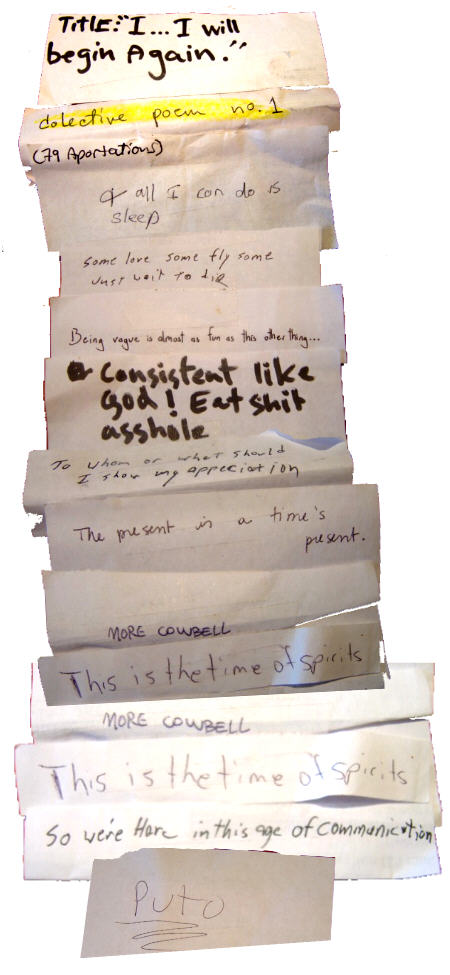 TITLE:"I... I will
begin Again."
colective poem no.1
(79 Aportations)
& all I can do is
sleep
some love some fly some
Just wait to die
Being vague is almost as fun as this other thing...
Consistent like
God! Eat shit
asshole
To whom or what should
I show my appreciation
The present is a time's
present.
MORE COWBELL
This is the time of spirits
MORE COWBELL
This is the time of spirits
So we're Here in this age of communication
PUTO